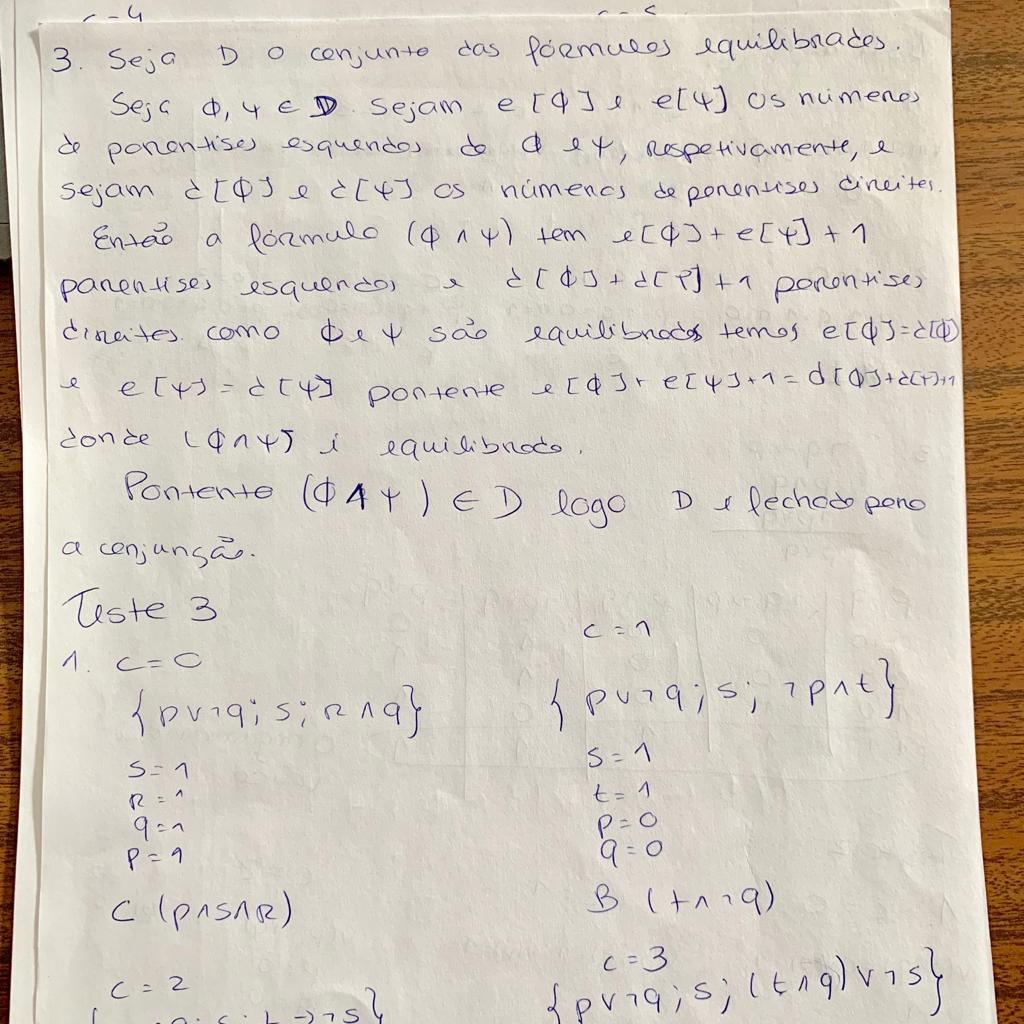 3. Seja D o conjunto das fórmulas equilibradas.
Seja Φ, Ψ ∈ D. Sejam e[Φ] e e[Ψ] os números
de parentises esquerdos de Φ e Ψ, respetivamente, e
sejam d[Φ] e d[Ψ] os números de parentises direitos.
Então a fórmula (Φ ∧ Ψ) tem e[Φ] + e[Ψ] + 1
parentises esquerdos e d[Φ] + d[Ψ] + 1 parentises
direitos. como Φ e Ψ são equilibrados temos e[Φ] = d[Φ]
e e[Ψ] = d[Ψ] portento e[Φ] + e[Ψ] + 1 = d[Φ] + d[Ψ] + 1
donde (Φ ∧ Ψ) é equilibrado.
Portento (Φ ∧ Ψ) ∈ D logo D e fechado para
a conjunção.
Teste 3
1. C = 0
{p ∨ ¬q; s; r ∧ q}
s = 1
r = 1
q = 1
p = 1
C (p ∧ s ∧ r)
C = 1
{p ∨ ¬q; s; ¬p ∧ t}
s = 1
t = 1
p = 0
q = 0
B (t ∧ ¬q)
C = 2
C = 3
{p ∨ ¬q; s; (t ∧ q) ∨ ¬s}